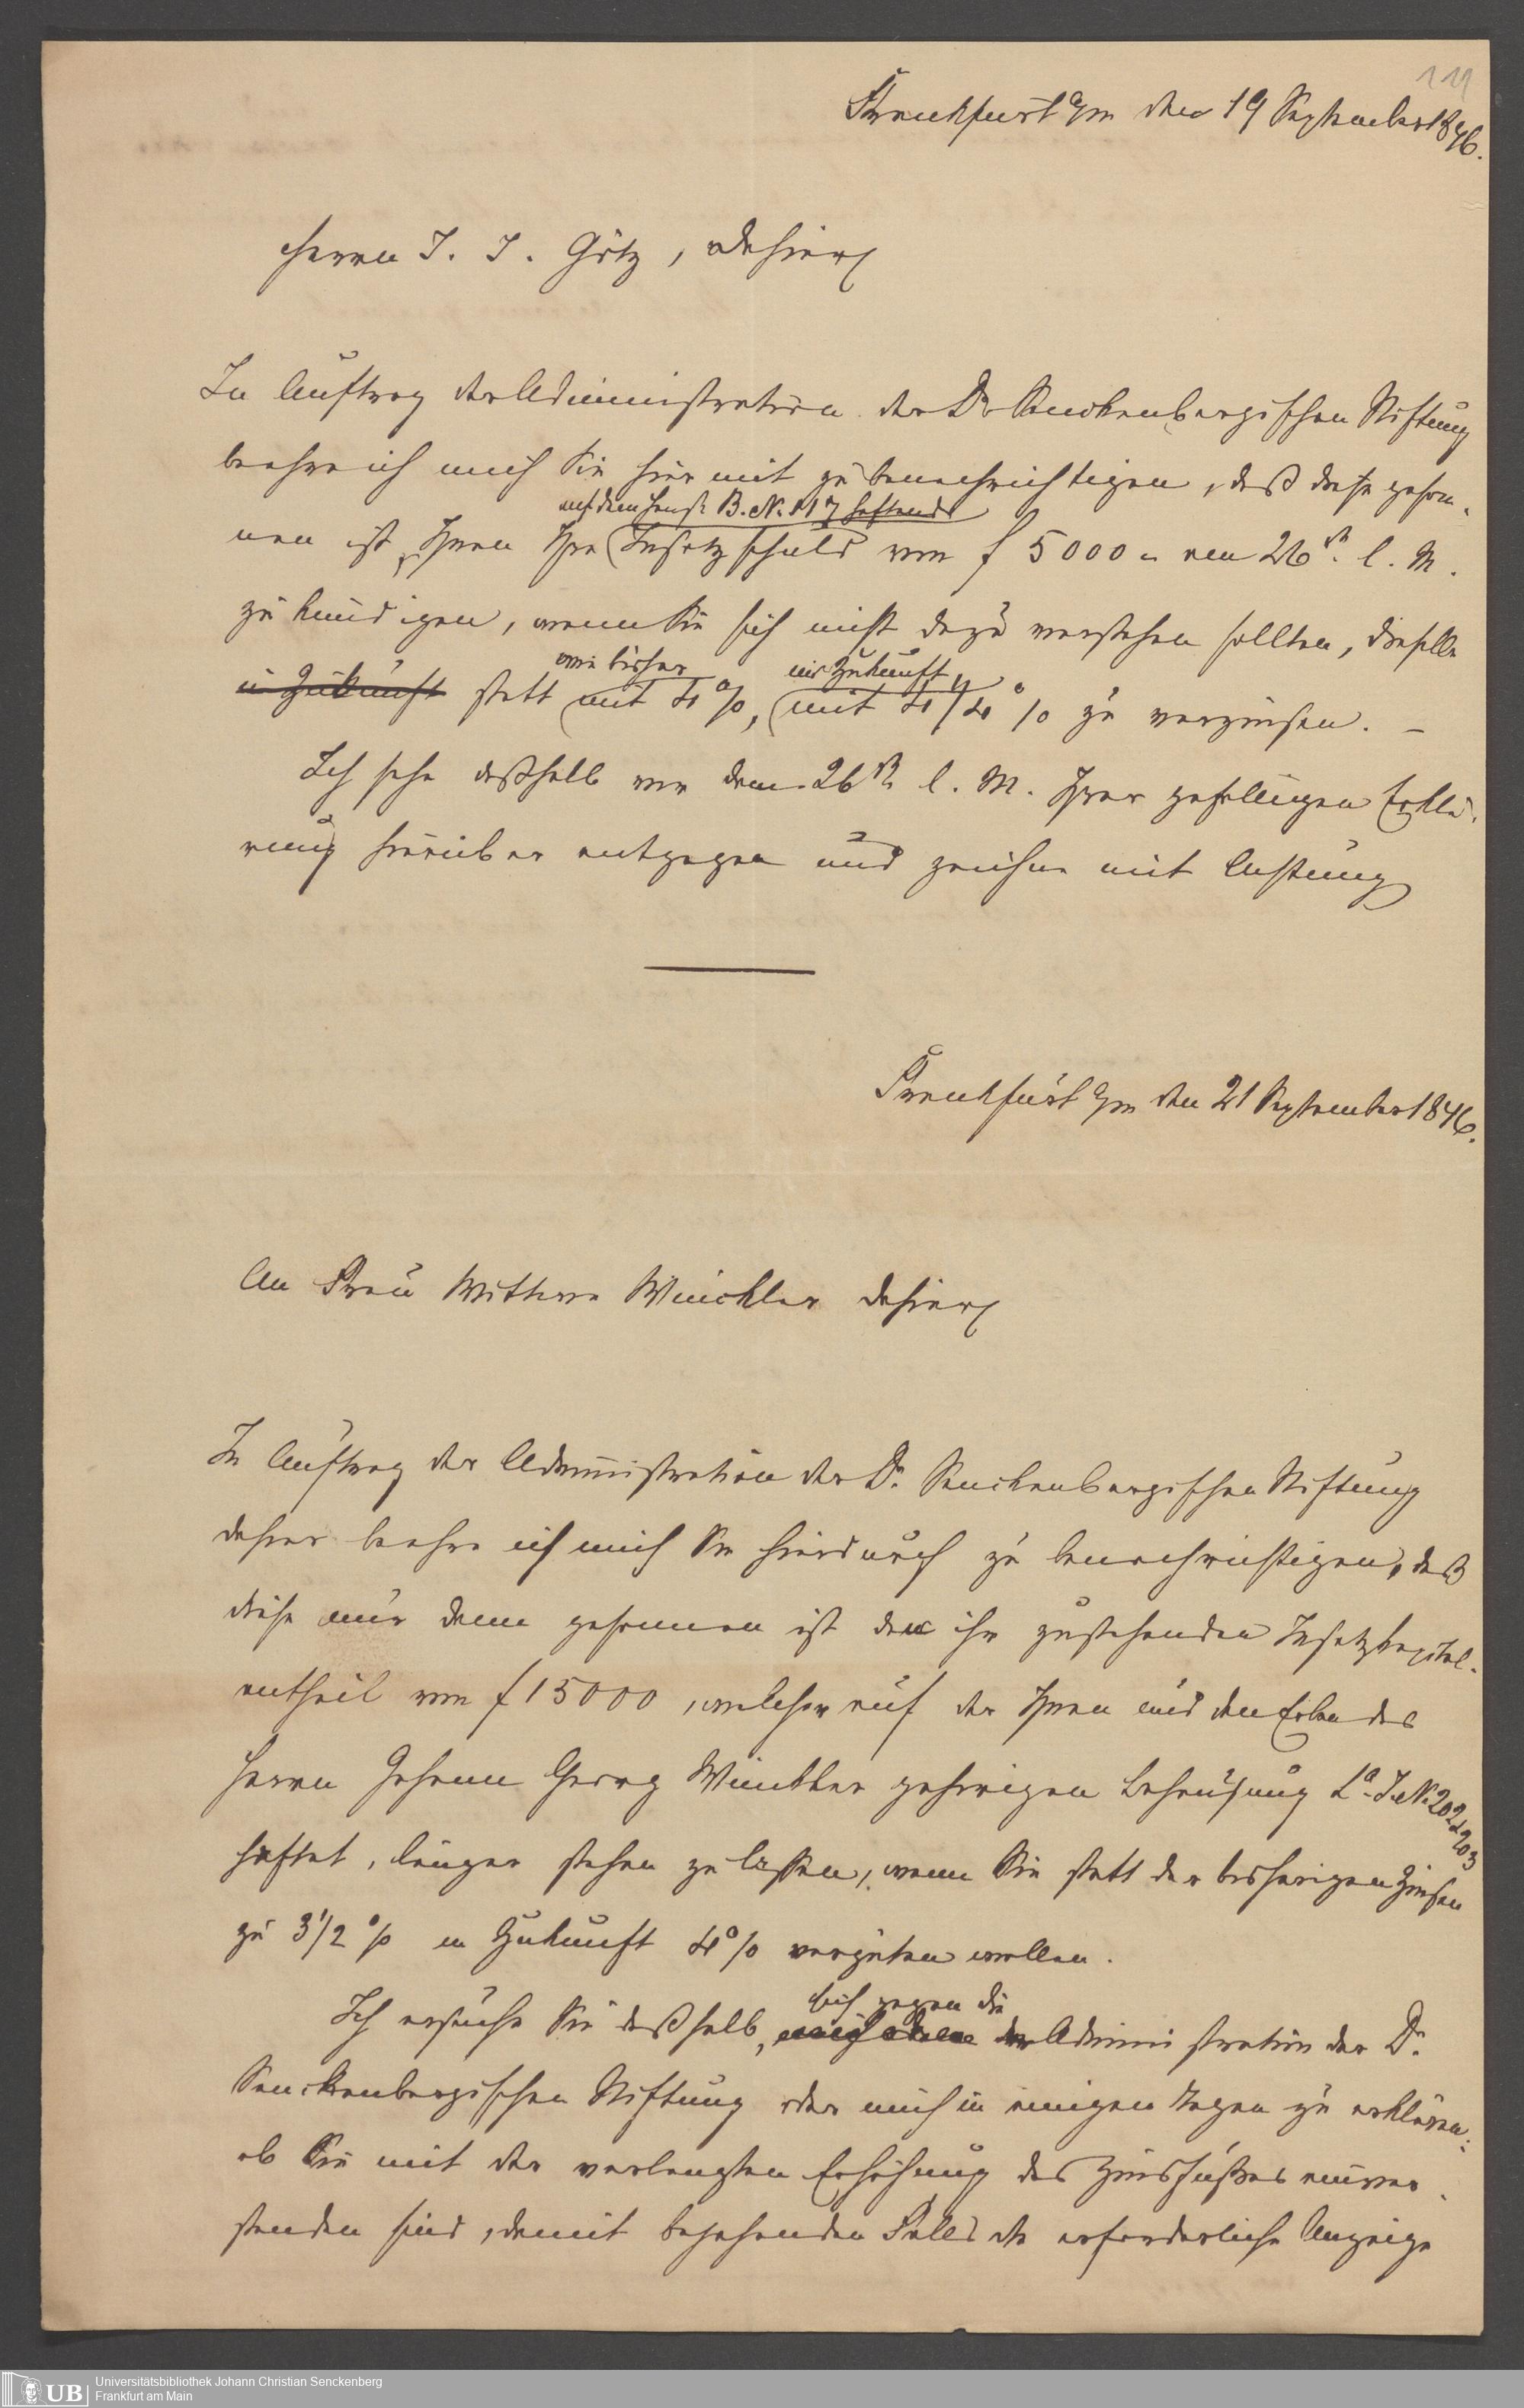 111
Frankfurt a/m den 19 September 1846.
Herrn J. J. Götz, dahier
Im Auftrag der Administration der Dr Senckenbergischen Stiftung
beehre ich mich Sie hiermit zu benachrichtigen, daß diese geson-
auf dem Hause B. No. 117 haftende
nen ist, Ihnen Ihre Insatzschuld von f 5000 l. M.
zu kündigen, wenn Sie sich nicht dazu verstehen sollten, dieselbe
wie bisher in Zukunft
in Zukunft statt mit 4 %, mit 4 1/4 % zu verzinsen. –
Ich sehe deßhalb vor dem 26st. l. M. Ihrer gefälligen Erklä-
rung hierüber entgegen und zeichne mit Achtung
Frankfurt a/m den 21 September 1846.
An Frau Wittwe Winckler dahier
Im Auftrag der Administration der Dr. Senckenbergischen Stiftung
dahier beehre ich mich Sie hierdurch zu benachrichtigen, daß
diese nur dann gesonnen ist den ihr zustehenden Insatzkapital-
antheil von f 15000, welcher auf der Ihnen und den Erben des
Herrn Johann Georg Winckler gehörigen Behausung La. J. No. 202 & 203
haftet, länger stehen zu lassen, wenn Sie statt der bisherigen Zinsen
zu 3 1/2 % in Zukunft 4 % vergüten wollen.
sich gegen die
Ich ersuche Sie deßhalb, der Administration der Dr.
Senckenbergischen Stiftung oder mich in einigen Tagen zu erklären:
ob Sie mit der verlangten Erhöhung des Zinsfußes einver-
standen sind, damit bejahenden Falls die erforderliche Anzeige
UB
Universitätsbibliothek Johann Christian Senckenberg
Frankfurt am Main